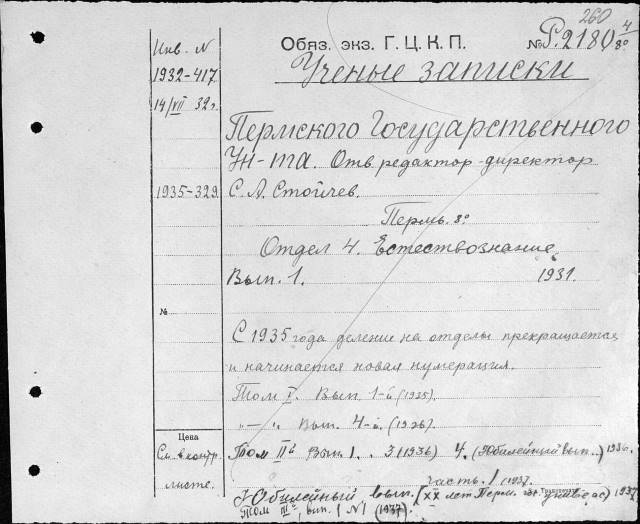 260
Обяз. экз. Г. Ц. К. П.
№ Р.2180 4/8°
Инв. N
1932-417
14/VII 32г.
1935-329
№
Цена
См. в контр.
листе.
Ученые записки
Пермского Государственного
Ун-та. Отв. редактор-директор
С. А. Стойчев.
Пермь. 8°
Отдел 4. Естествознание.
Вып. 1. 1931.
С 1935 года деление на отделы прекращается
и начинается новая нумерация.
Том I. Вып. 1-й (1935).
"—" Вып. 4-й. (1936).
Том II й Вып. 1. . 3 (1936) 4. (Юбилейный вып..) 1936.
часть. 1 (1937.
Юбилейный вып. (XX лет Перм. гос. 1937
Том III, вып. 1 N) (1937).